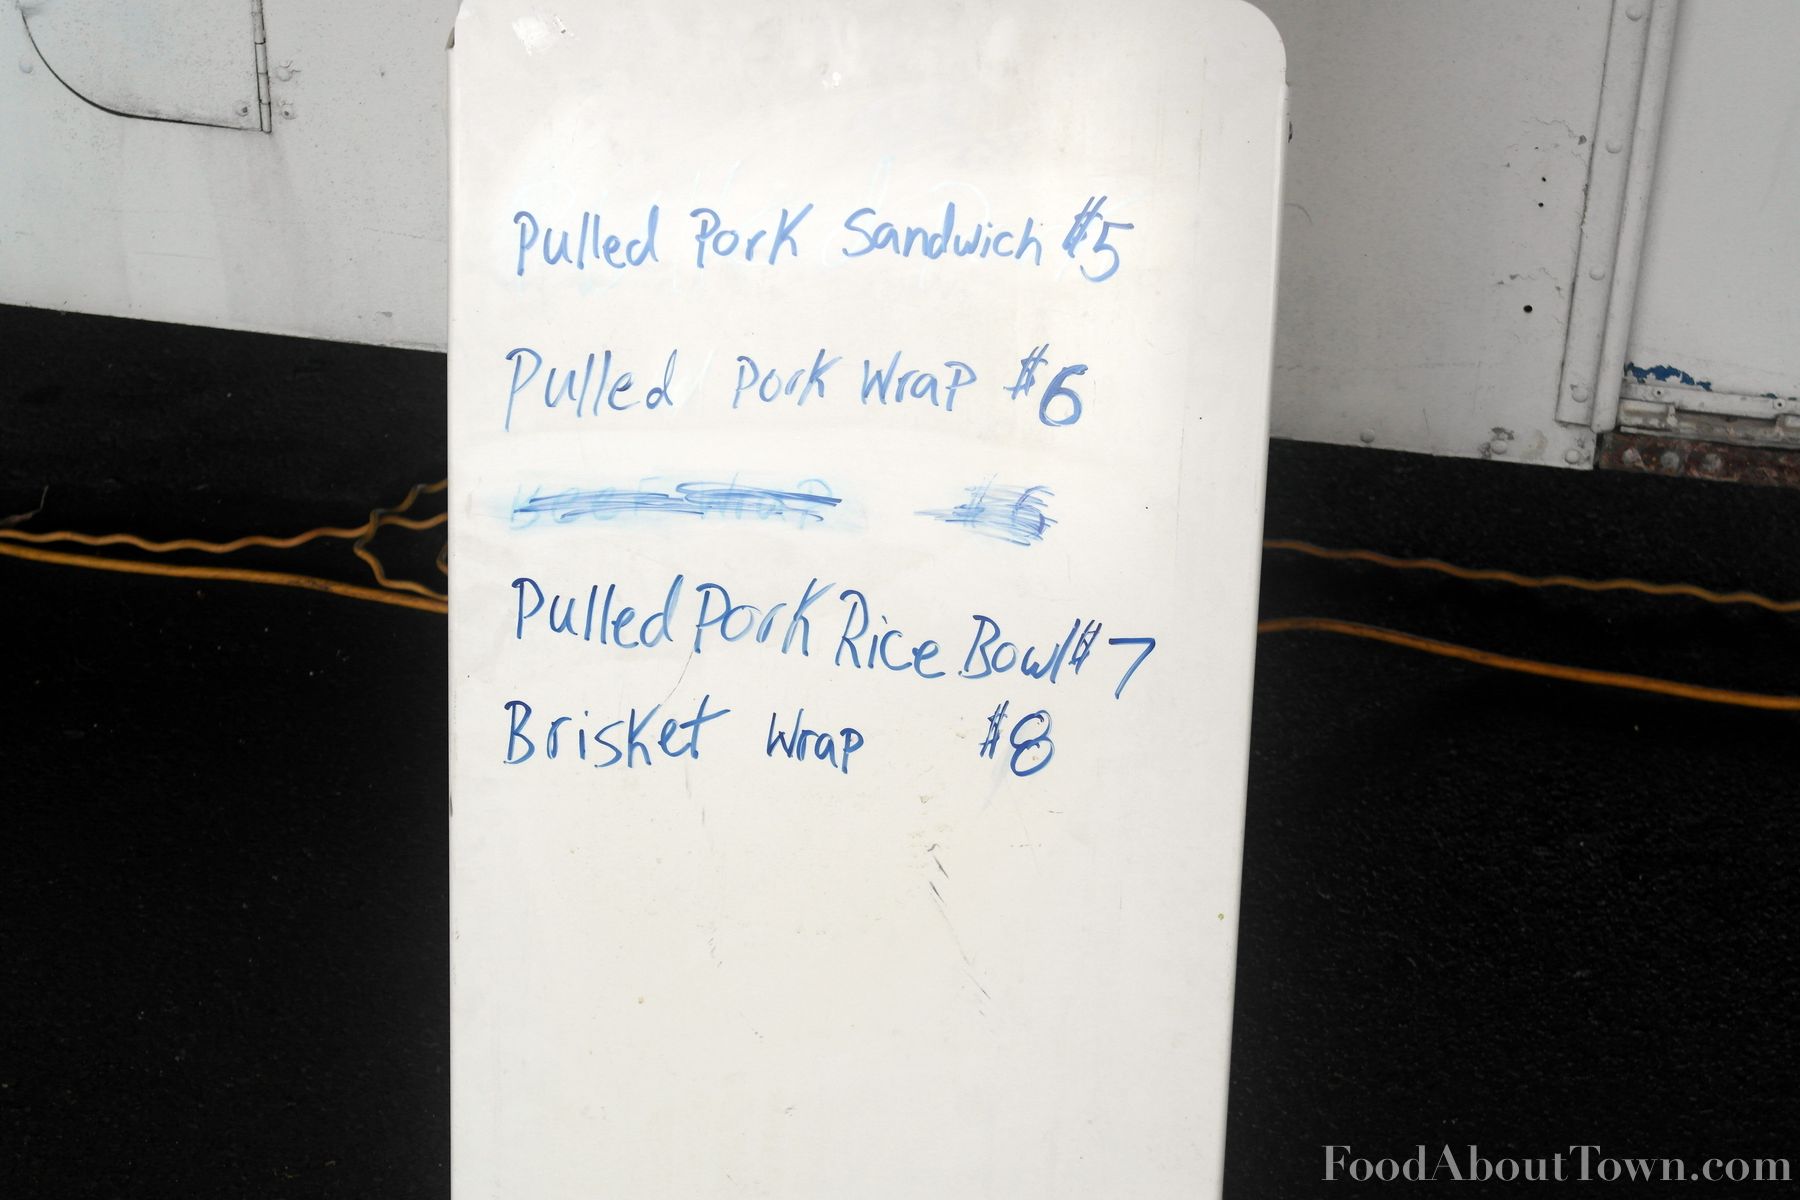 Pulled Pork Sandwich $5
Pulled Pork Wrap $6
Beef Wrap $6
Pulled Pork Rice Bowl $7
Brisket Wrap $8
FoodAboutTown.com